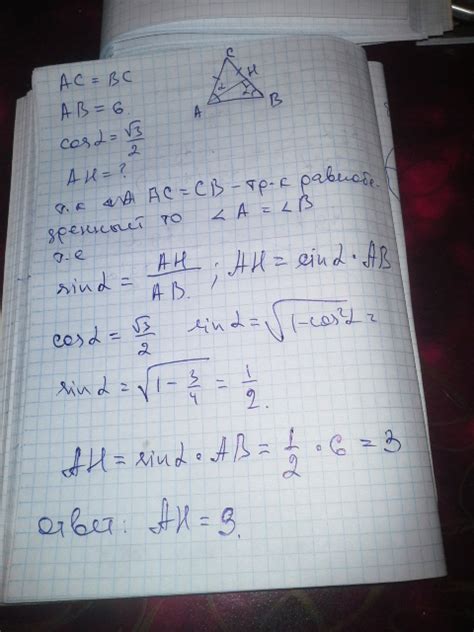 AC = BC
AB = 6
cosα = √3/2
AH = ?
C
H
A
B
α
α
т.к AC = CB - тр-к равнобе-
дренный то ∠A = ∠B
т.е
sinα = AH/AB ; AH = sinα · AB
cosα = √3/2 sinα = √(1-cos²α) =
sinα = √(1 - 3/4) = 1/2.
AH = sinα · AB = 1/2 · 6 = 3
ответ: AH = 3.